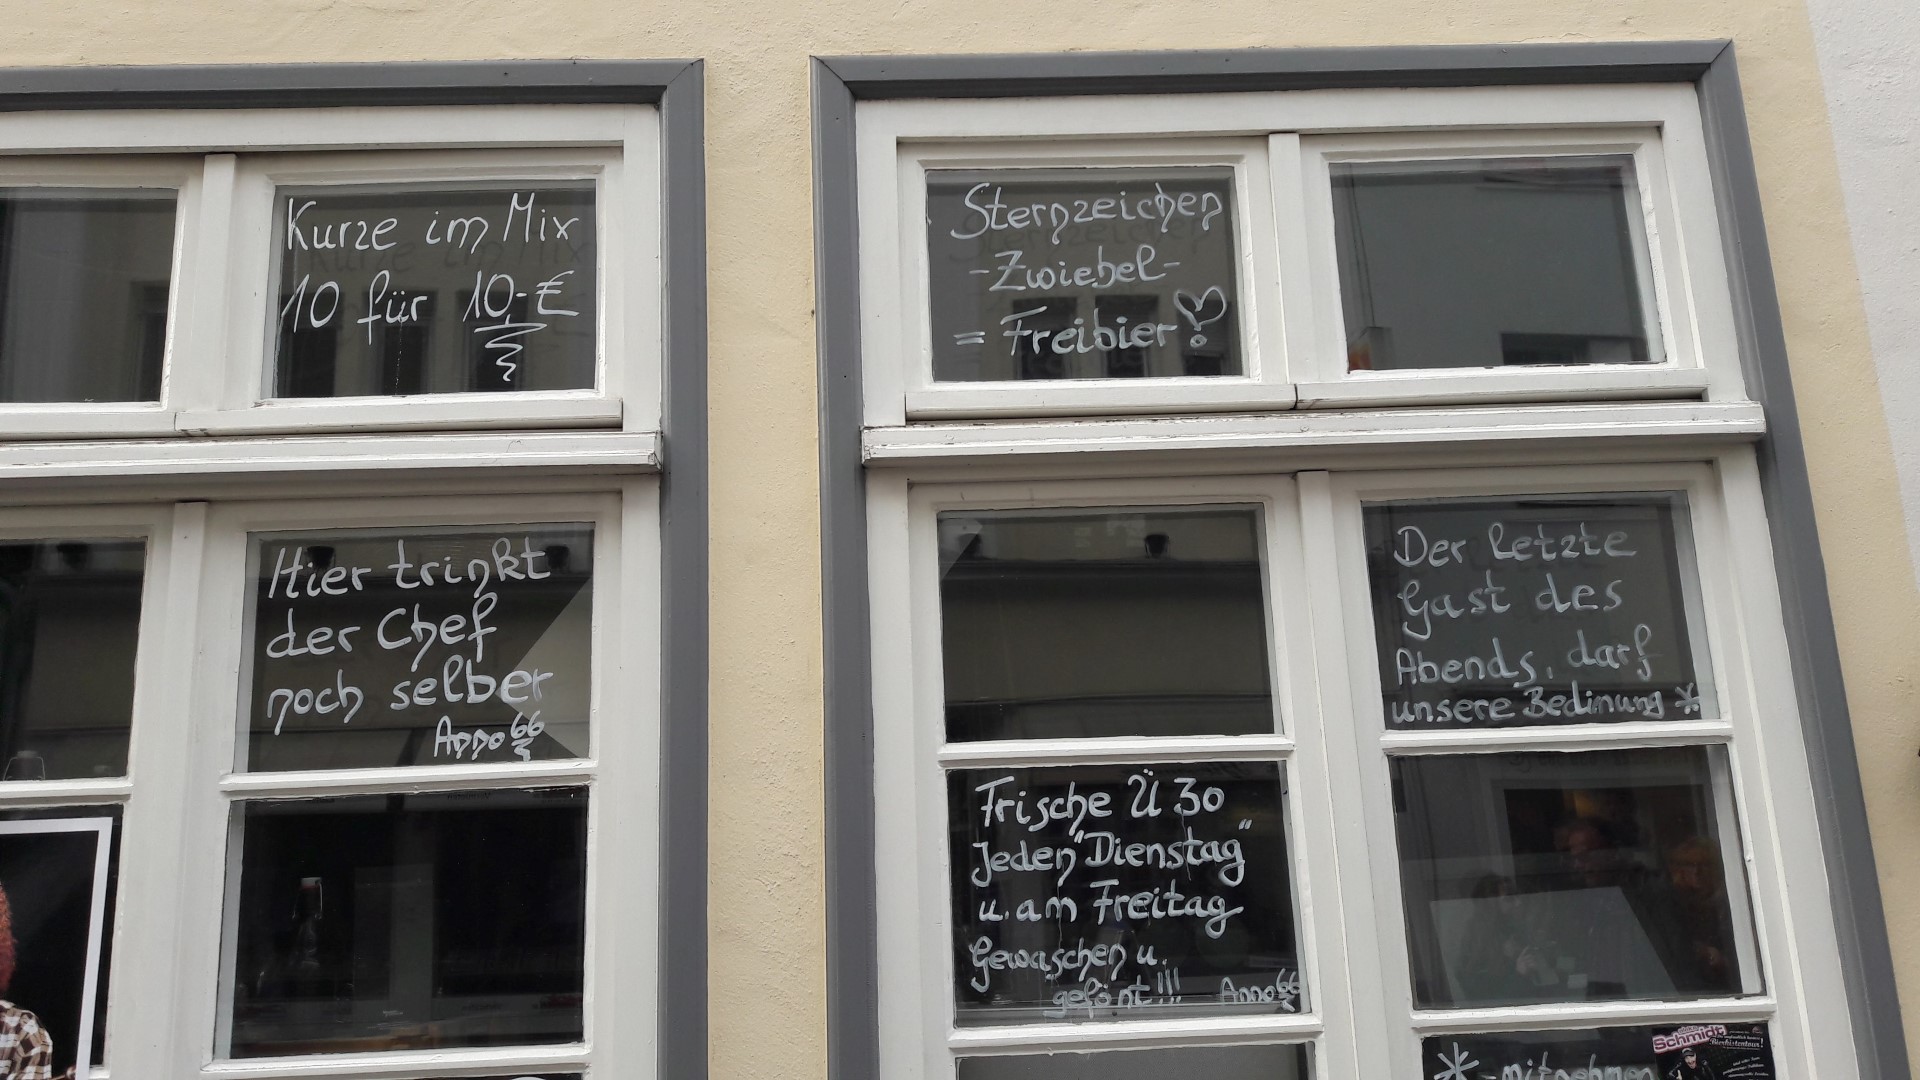 Kurze im Mix
10 für 10,-€
Hier trinkt
der Chef
noch selber
Anno 66
Sternzeichen
-Zwiebel-
= Freibier!
Frische Ü 30
Jeden "Dienstag"
u. am Freitag
Gewaschen u.
gefönt!!!
Anno 66
Der letzte
Gast des
Abends, darf
unsere Bedinung *
* - mitnehmen
Schmidt